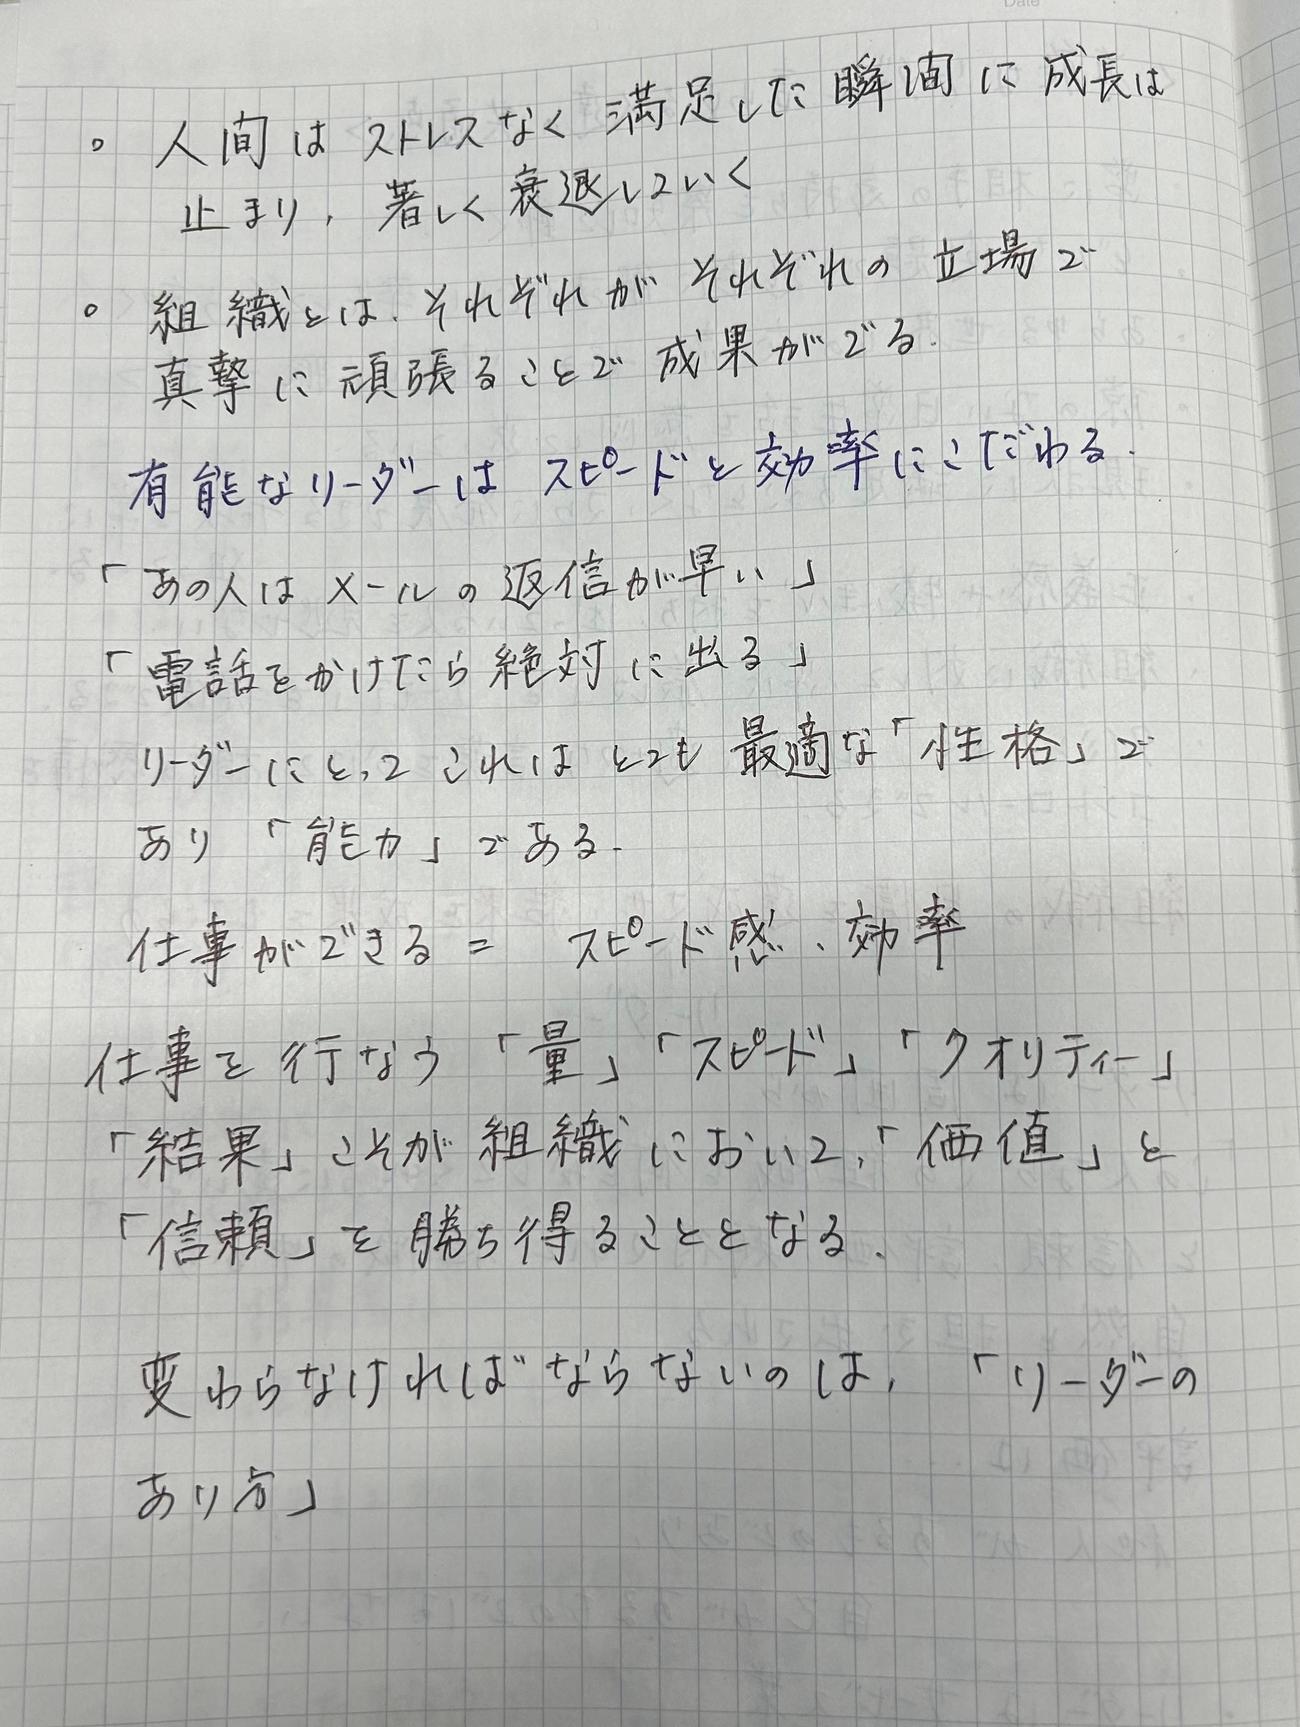 Date
。人間はストレスなく満足した瞬間に成長は
止まり、著しく衰退していく
。組織とは、それぞれがそれぞれの立場で
真摯に頑張ることで成果がでる.
有能なリーダーはスピードと効率にこだわる.
「あの人はメールの返信が早い」
「電話をかけたら絶対に出る」
リーダーにとってこれはとても最適な「性格」で
あり「能力」である.
仕事ができる = スピード感、効率
仕事を行なう「量」「スピード」「クオリティー」
「結果」こそが組織において、「価値」と
「信頼」を勝ち得ることとなる、
変わらなければならないのは、「リーダーの
あり方」